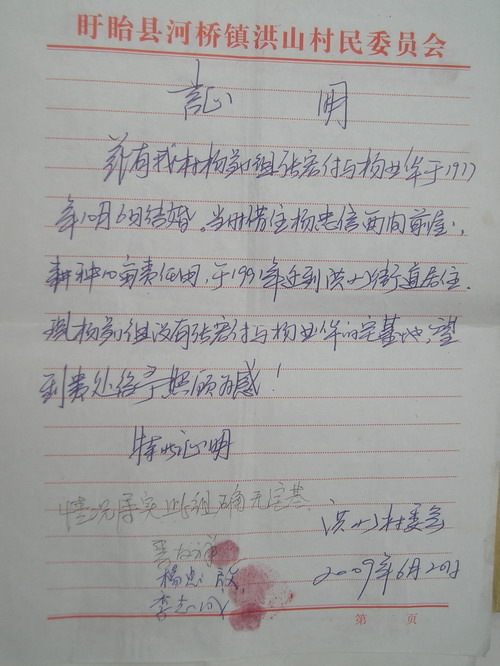 盱眙县河桥镇洪山村民委员会
证 明
兹有我村杨郢组张宏付与杨业华于1977
年10月6日结婚。当时借住杨忠信两间前屋,
耕种10亩责任田,于1991年迁到洪山街道居住.
现杨郢组没有张宏付与杨业华的宅基地,望
到贵处给予照顾为感!
特此证明
情况属实 此组确无宅基
洪山村委会
杨忠
2009年6月20日
李志
第 页